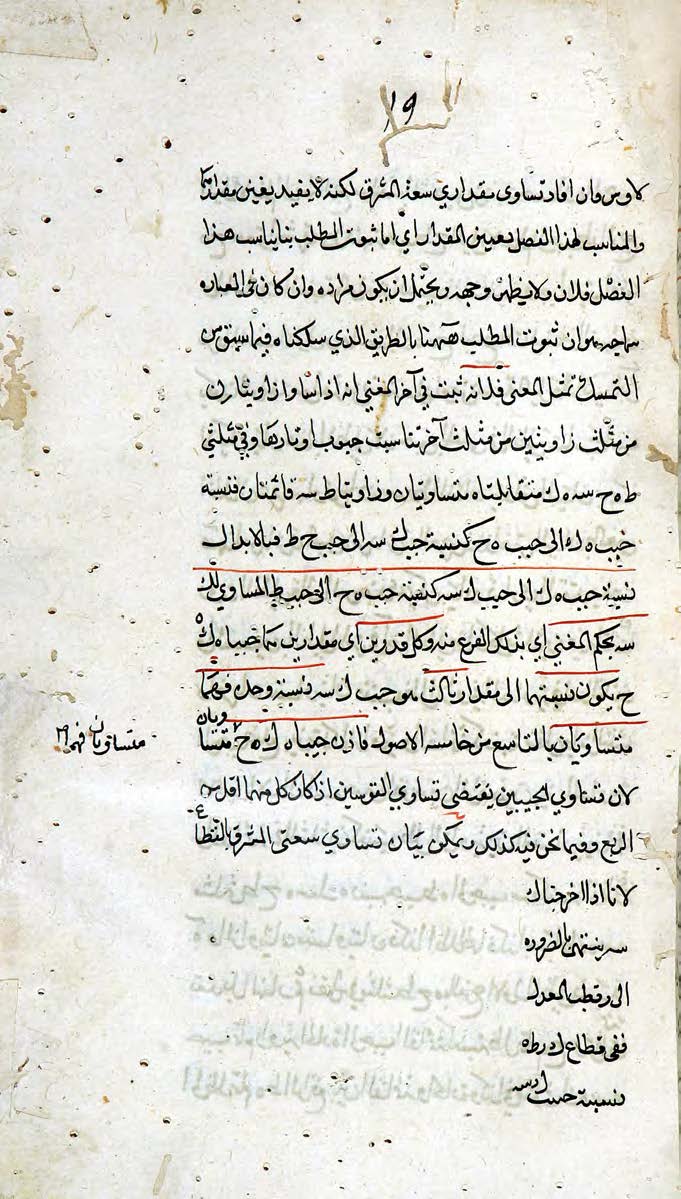 ١٩
لاوس وان افاد تساوى مقداري سعة المشرق لكنه لا يفيد يغين مقدارتها
والمناسب لهذا الفصل تعيين المقدار اي اما ثبوت المطلب بنا يناسب هذا
الفصل فلان ولا يظهر وجهه ويحتمل ان يكون مراده وان كان في العباره
هو ان ثبوت المطلب ههنا بالطريق الذي سلكناه فيما سبق من
التمسك تمثل المغني فلانه ثبت في آخر المغني انه اذا ساو زاويتان
من مثلث زاويتين من مثلث آخر تناسبت جيوب اوتارها وفي مثلثي
ط ه ح سه ه ك متقابلتاه متساويتان وزاويتا ط سه قائمتان فنسبة
جيب ه ك الى جيب ه ح كنسبة جيب ك سه الى جيب ح ط فبالابدال
نسبة جيب ه ك الى جيب ك سه كنسبة جيب ه ح الى جيب ط المساوي لك
سه بحكم المغني اي بذلك الفرع منه وكل قدرين اي مقدارين هما جيبا ه ك
ح يكون نسبتهما الى مقدار ثالث هو جيب ك سه نسبة وحده فهما
متساويان بالتاسع من خامسه الاصول فاذن جيبا ه ك ه ح متسا
ويان
متساويان فهما
لان تساوي الجيبين يقتضي تساوي القوسين اذ كان كل منهما اقل من
الربع وفيما نحن فيه كذلك ويمكن بيان تساوي سعتى المشرق بالقطاع
لانا اذا اخرجنا ك
سه ينتهي بالضروره
الى ر قطب المعدل
ففي قطاع ك ر ط ه
نسبة جيب ك سه